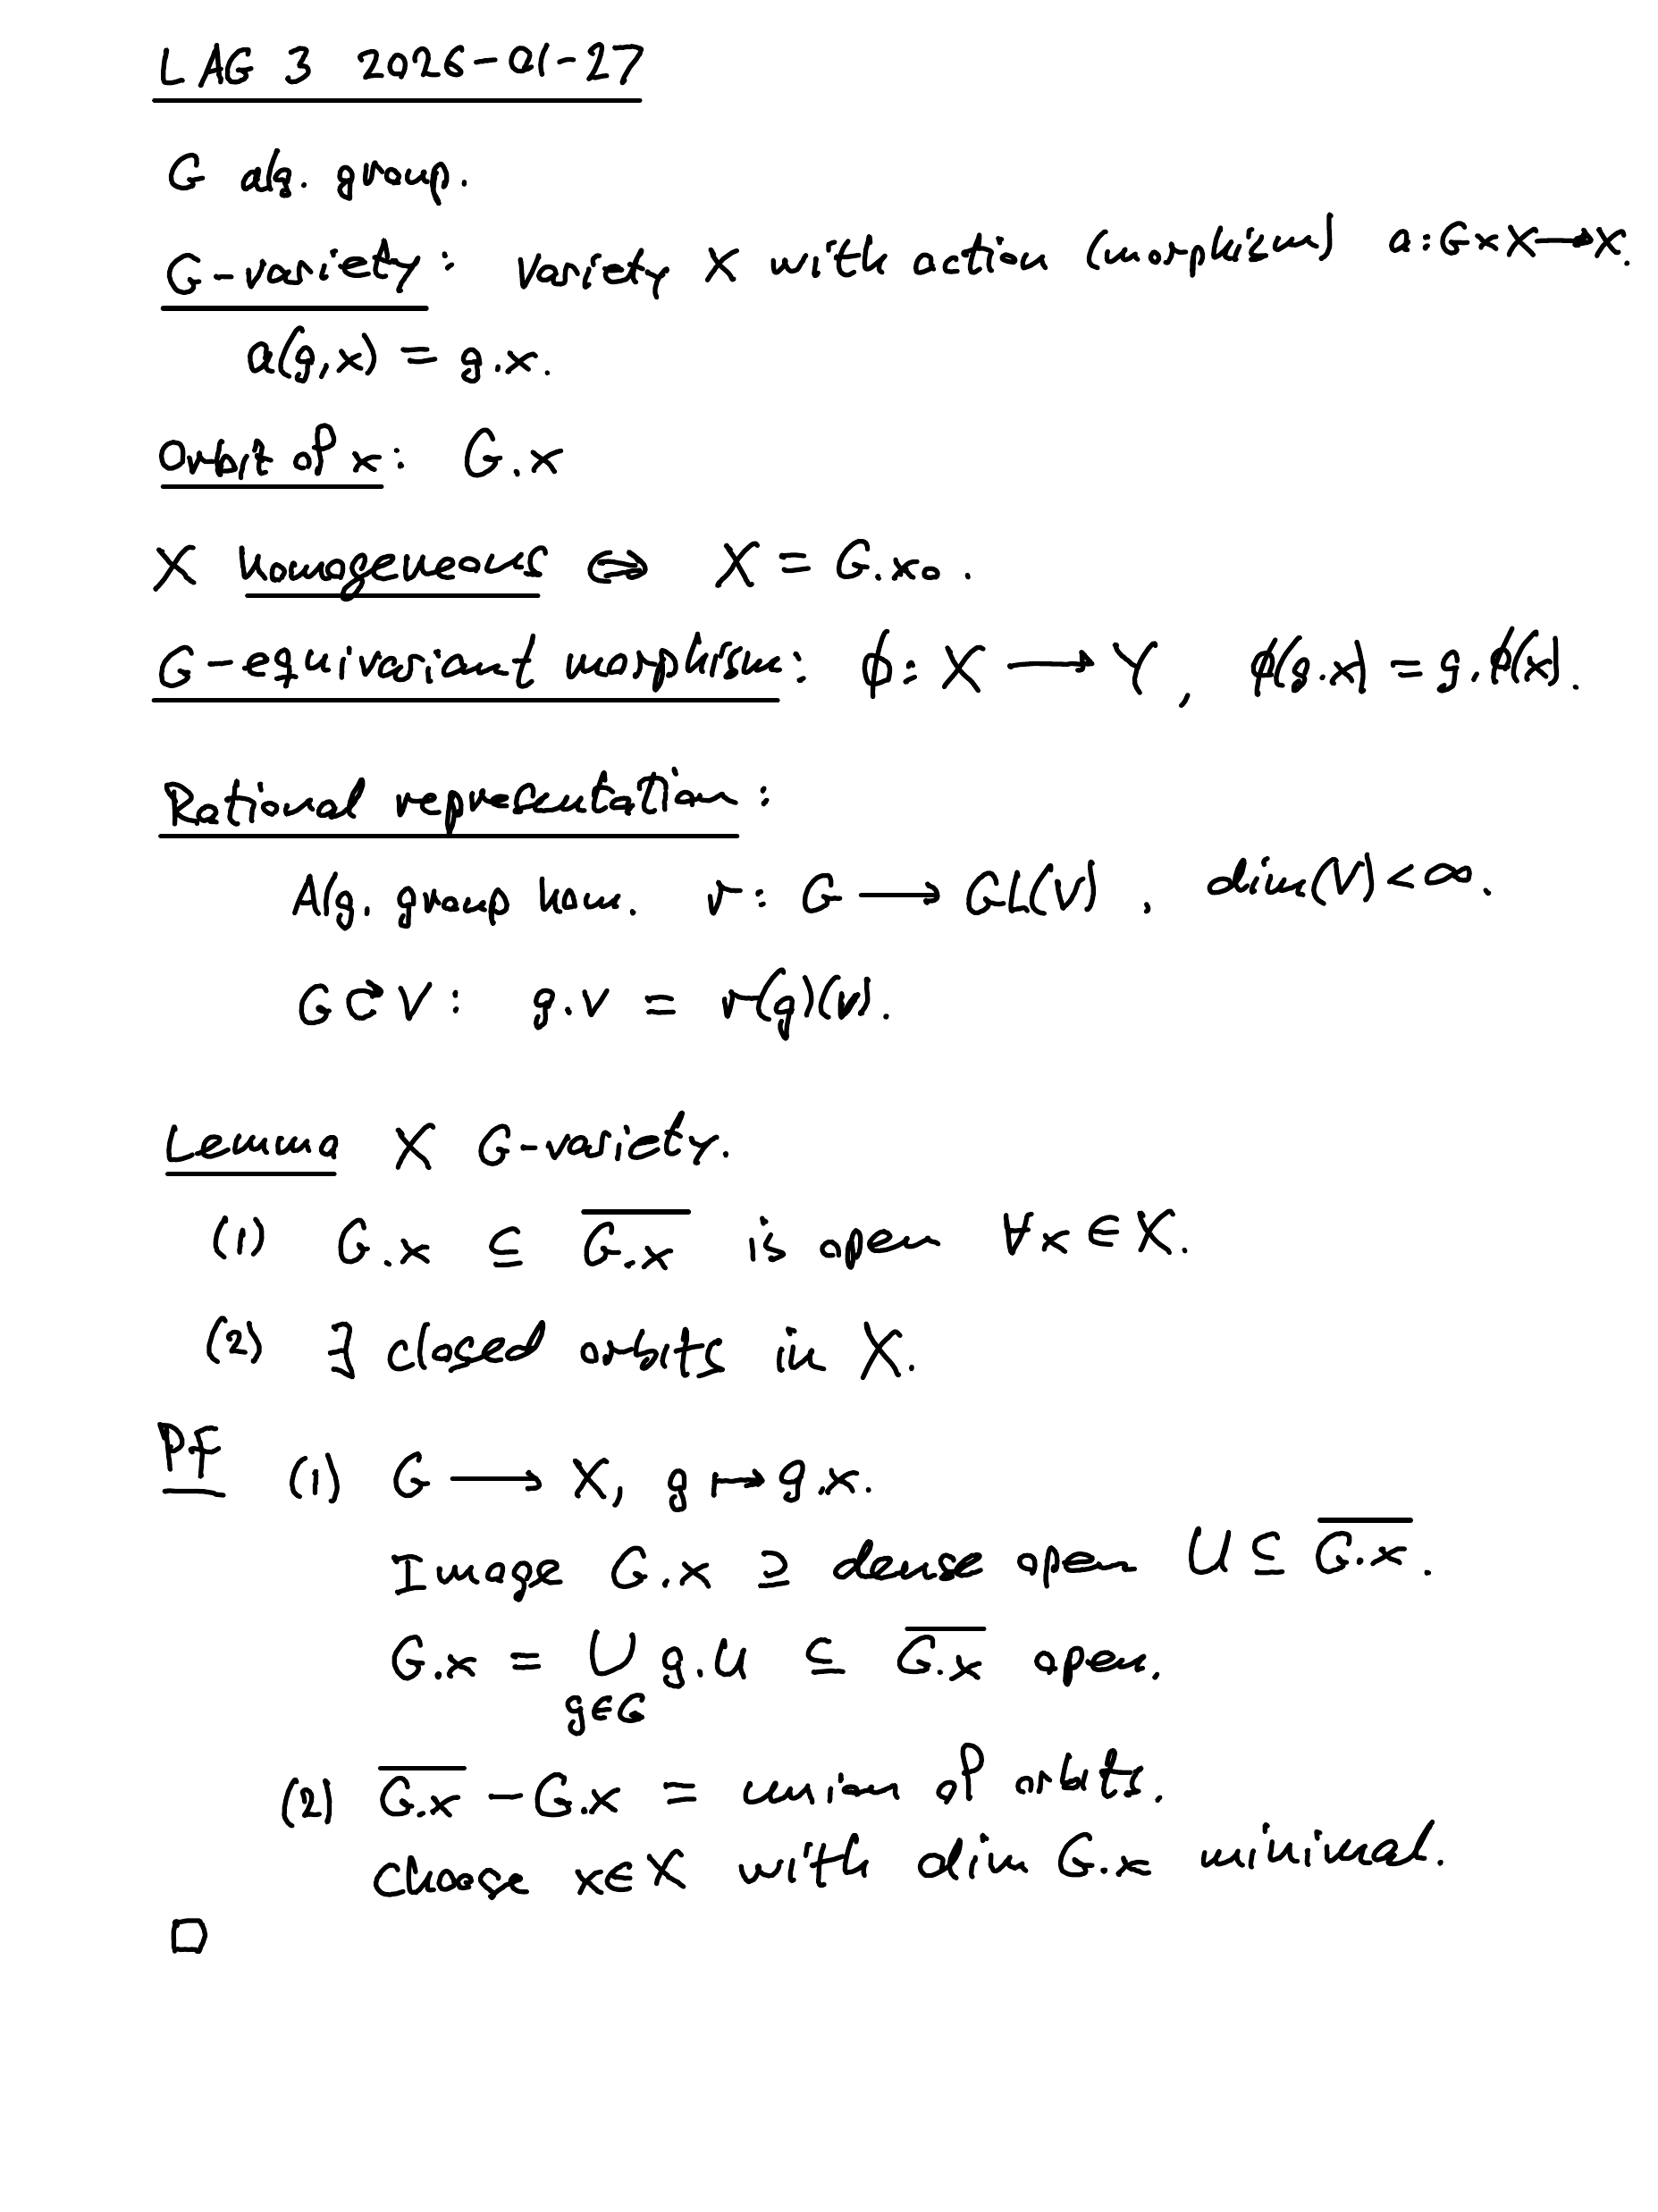 LAG 3 2026-01-27
G alg. group.
G-variety: Variety X with action (morphism) a: G×X⟶X.
a(g,x) = g.x.
Orbit of x: G.x
X homogeneous ⇔ X = G.x₀.
G-equivariant morphism: ϕ: X ⟶ Y, ϕ(g.x) = g.ϕ(x).
Rational representation:
Alg. group hom. r: G ⟶ GL(V), dim(V) < ∞.
G ⟳ V: g.v = r(g)(v).
Lemma X G-variety.
(1) G.x ⊆ \overline{G.x} is open ∀x ∈ X.
(2) ∃ closed orbits in X.
Pf (1) G ⟶ X, g ↦ g.x.
Image G.x ⊇ dense open U ⊆ \overline{G.x}.
G.x = ⋃_{g∈G} g.U ⊆ \overline{G.x} open.
(2) \overline{G.x} - G.x = union of orbits.
Choose x∈X with dim G.x minimal.
□